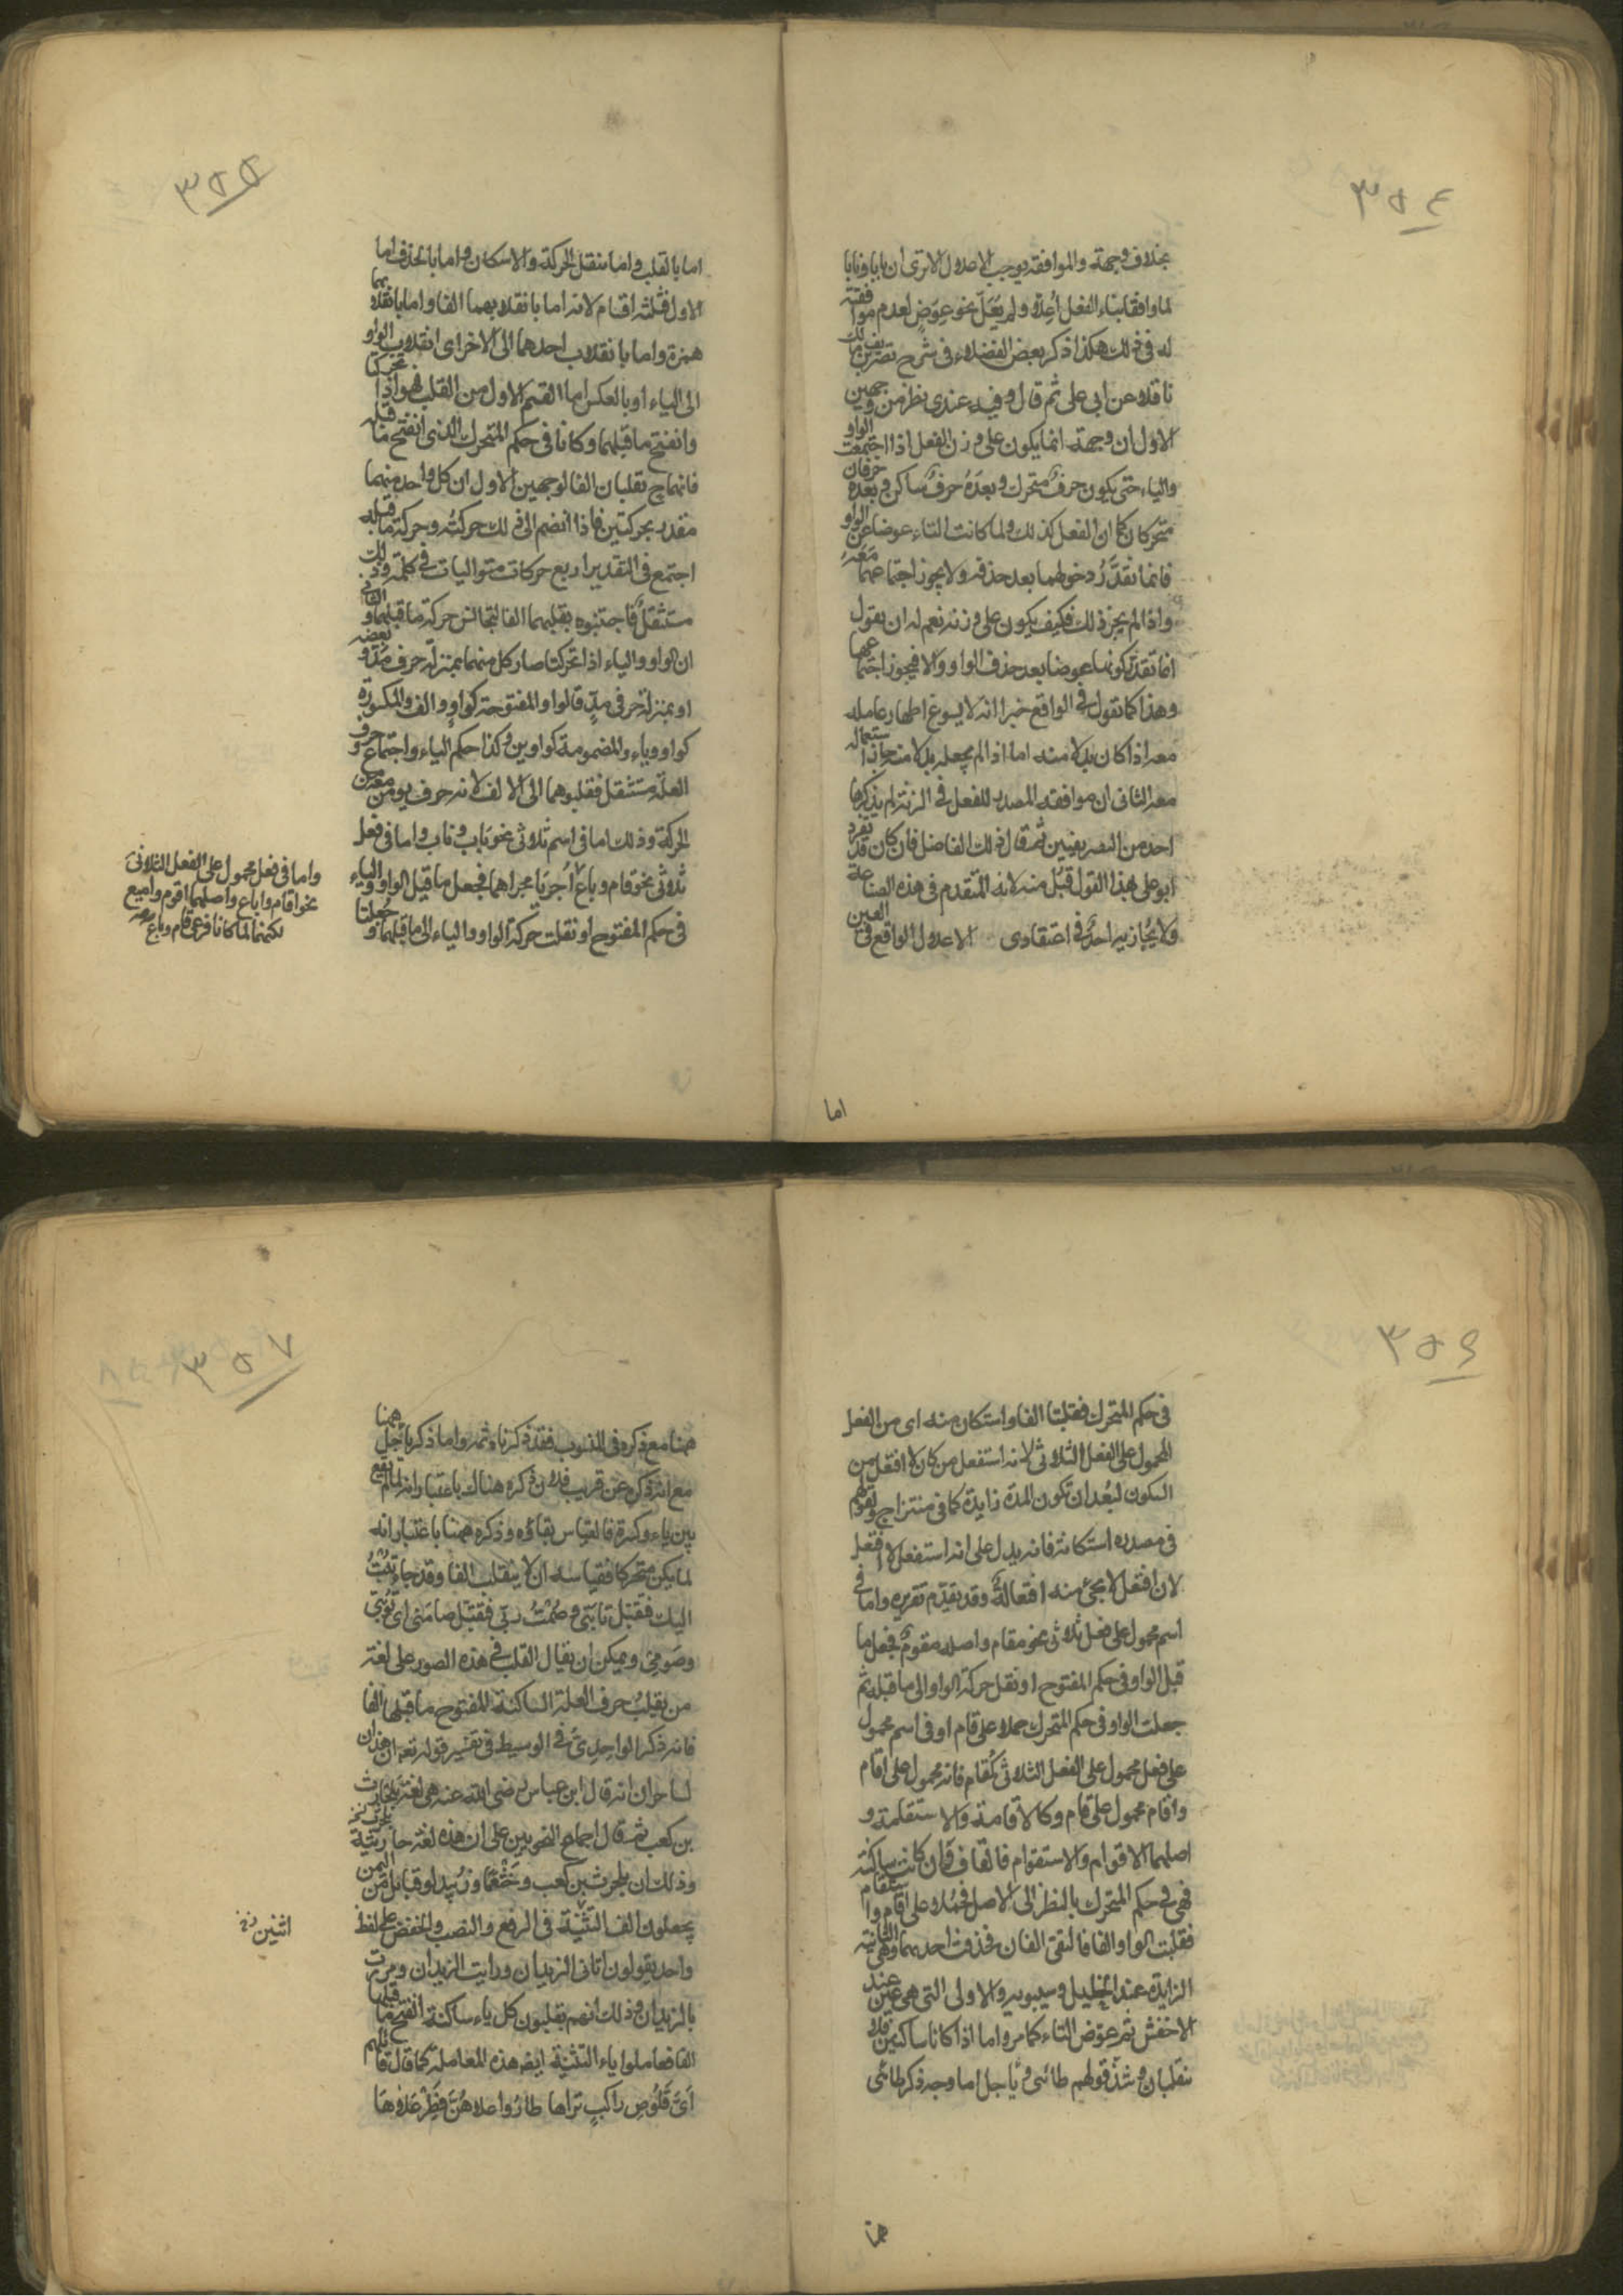 ٣٥٤
بخلاف وجهة والموافقة يوجب الاعلال الا ترى ان بابا ونابا
لما وافقا بناء الفعل اُعِلّا ولم يُعَلّ نحو عِوَضٍ لعدم موافقته
له فى ذلك هكذا ذكر بعض الفضلاء فى شرح تصريف ابن مالك
ناقلا عن ابى على ثم قال وفيه عندى نظر من وجهين
الاول ان وجهة انما يكون على وزن الفعل اذا اجتمعت الواو
والياء حتى يكون حرفٌ متحرك وبعدَهُ حرفٌ ساكن وبعده حرفان
متحركان كما ان الفعل كذلك ولما كانت التاء عوضا عن الواو
فانما نقدّرُ دخولها بعد حذفه ولا يجوز اجتماعهما معَهُ
واذا لم يجز ذلك فكيف يكون على وزنه نعم له ان يقول
انما تقدّر كونها عوضا بعد حذف الواو والا فيجوز اجتماعهما
وهذا كما نقول فى الواقع خبرا انه لا يسوغ اظهار عامله
معه اذا كان بدلا منه اما اذا لم يجعله بدلا منه جاز استعماله
معه الثانى ان موافقة المصدر للفعل فى الزنة لم يذكرها
احد من التصريفيين ثم قال ذلك الفاضل فان كان قد تفرد
ابو على بهذا القول قُبل منه لانه المتقدم فى هذه الصناعة
ولا يُجازيه احدٌ فى اعتقادى الاعلال الواقع فى العين
اما
٣٥٥
اما بالقلب واما بنقل الحركة والاسكان واما بالحذف اما
الاول فثلثة اقسام لانه اما بانقلابهما الفا واما بانقلابهما
همزة واما بانقلاب احدهما الى الاخر اى انقلاب الواو
الى الياء او بالعكس اما القسم الاول من القلب فهو اذا تحركتا
وانفتح ما قبلهما وكانا فى حكم المتحرك الذى انفتح ما قبله
فانهما ح تقلبان الفا لوجهين الاول ان كل واحد منهما
مقدر بحركتين فاذا انضم الى ذلك حركتُه وحركة ما قبله
اجتمع فى التقدير اربع حركات متواليات فى كلمة وذلك
مستثقلٌ فاجتنبوه بقلبهما الفا لتجانس حركة ما قبلهما والثانى
ان الواو والياء اذا تحركتا صار كل منهما بمنزلة حرف مَدّ وبعضه
او بمنزلة حرفى مدٍّ قالوا والمفتوحة كواوٍ والف والمكسورة
كواو وياءٍ والمضمومة كواوين وكذا حكم الياء واجتماع حروف
العلة مستثقل فقلبوهما الى الالف لانه حرف يومن معه من
الحركة وذلك اما فى اسم ثلاثى نحو باب وناب واما فى فعل
ثلاثى نحو قام وباع أُجريا مجراهما فجعل ما قبل الواو والياء
فى حكم المفتوح او نقلت حركة الواو والياء الى ما قبلهما وجُعلتا
واما فى فعل محمول على الفعل الثلاثى
نحو اقام واباع واصلهما اقوم وابيع
لكنهما لما كانا فرعى قام وباع
٣٥٦
فى حكم المتحرك فقلبتا الفا واستكان منه اى من الفعل
المحمول على الفعل الثلاثى لانه استفعل من كان لا افتعل من
السكون لبُعد ان تكون المدة زايدة كما فى منتزاح ولقولهم
فى مصدره استكانة فانه يدل على انه استفعل لا افتعل
لان افتعل لا يجئ منه افتعالةٌ وقد تقدّم تقريره واما فى
اسم محمول على فعل ثلاثى نحو مقام واصله مقومٌ فجعل ما
قبل الواو فى حكم المفتوح او نقل حركة الواو الى ما قبله ثم
جعلت الواو فى حكم المتحرك حملا على قام او فى اسم محمول
على فعل محمول على الفعل الثلاثى كمُقام فانه محمول على اقام
واقام محمول على قام وكالاقامة والاستقامة و
اصلهما الاقوام والاستقوام فالقاف وان كانت ساكنة
فهى فى حكم المتحرك بالنظر الى الاصل فحُملا على اقام واستقام
فقلبت الواو الفا فالتقى الفان فحذفت احدهما وهى الثانية
الزايدة عند الخليل وسيبويه والاولى التى هى عين عند
الاخفش ثم عوّض التاء كما مر واما اذا كانا ساكنين فلا
تقلبان وشذّ قولهم طائىٌ وياجل اما وجه ذكر طائى
همنا
٣٥٧
ههنا مع ذكره فى المنسوب فقد ذكرناه ثمه واما ذكر ياجل ههنا
مع انه ذكره عن قريب فلان ذكره هناك باعتبار انه لما لم يقع
بين ياء وكسرة فالقياس بقاؤه وذكره ههنا باعتبار انه
لما يكن متحركا فقياسه ان لا ينقلب الفا وقد جاء تُبْتُ
اليك فتقبّل تابَتى وصُمْتُ ربّى فتقبّل صامَتى اى توبتى
وصومتى ويمكن ان يقال القلب فى هذه الصور على لغة
من يقلبُ حرف العلة الساكنة المفتوح ما قبلها الفا
فانه ذكر الواحدىّ فى الوسيط فى تفسير قوله تعه ان هذان
لساحران انه قال ابن عباس رضى الله عنه هى لغة بلحارث
بن كعب ثم قال اجماع النحويين على ان هذه لغة حارثية
وذلك ان بلحرث بن كعب وخَثْعَما وزُبيدا وقبايل من اليمن
يجعلون الف التثنية فى الرفع والنصب والخفض على لفظ
واحد يقولون اتانى الزيدان ورايت الزيدان ومررت
بالزيدان وذلك انهم يقلبون كل ياء ساكنة انفتح ما قبلها
الفا فعاملوا ياء التثنية ايضه هذه المعاملة كما قال قائلهم
اَىَّ قَلُوصِ راكبٍ تراها طارُوا علاهُنّ فطِرْ عَلاهَا
اثنين